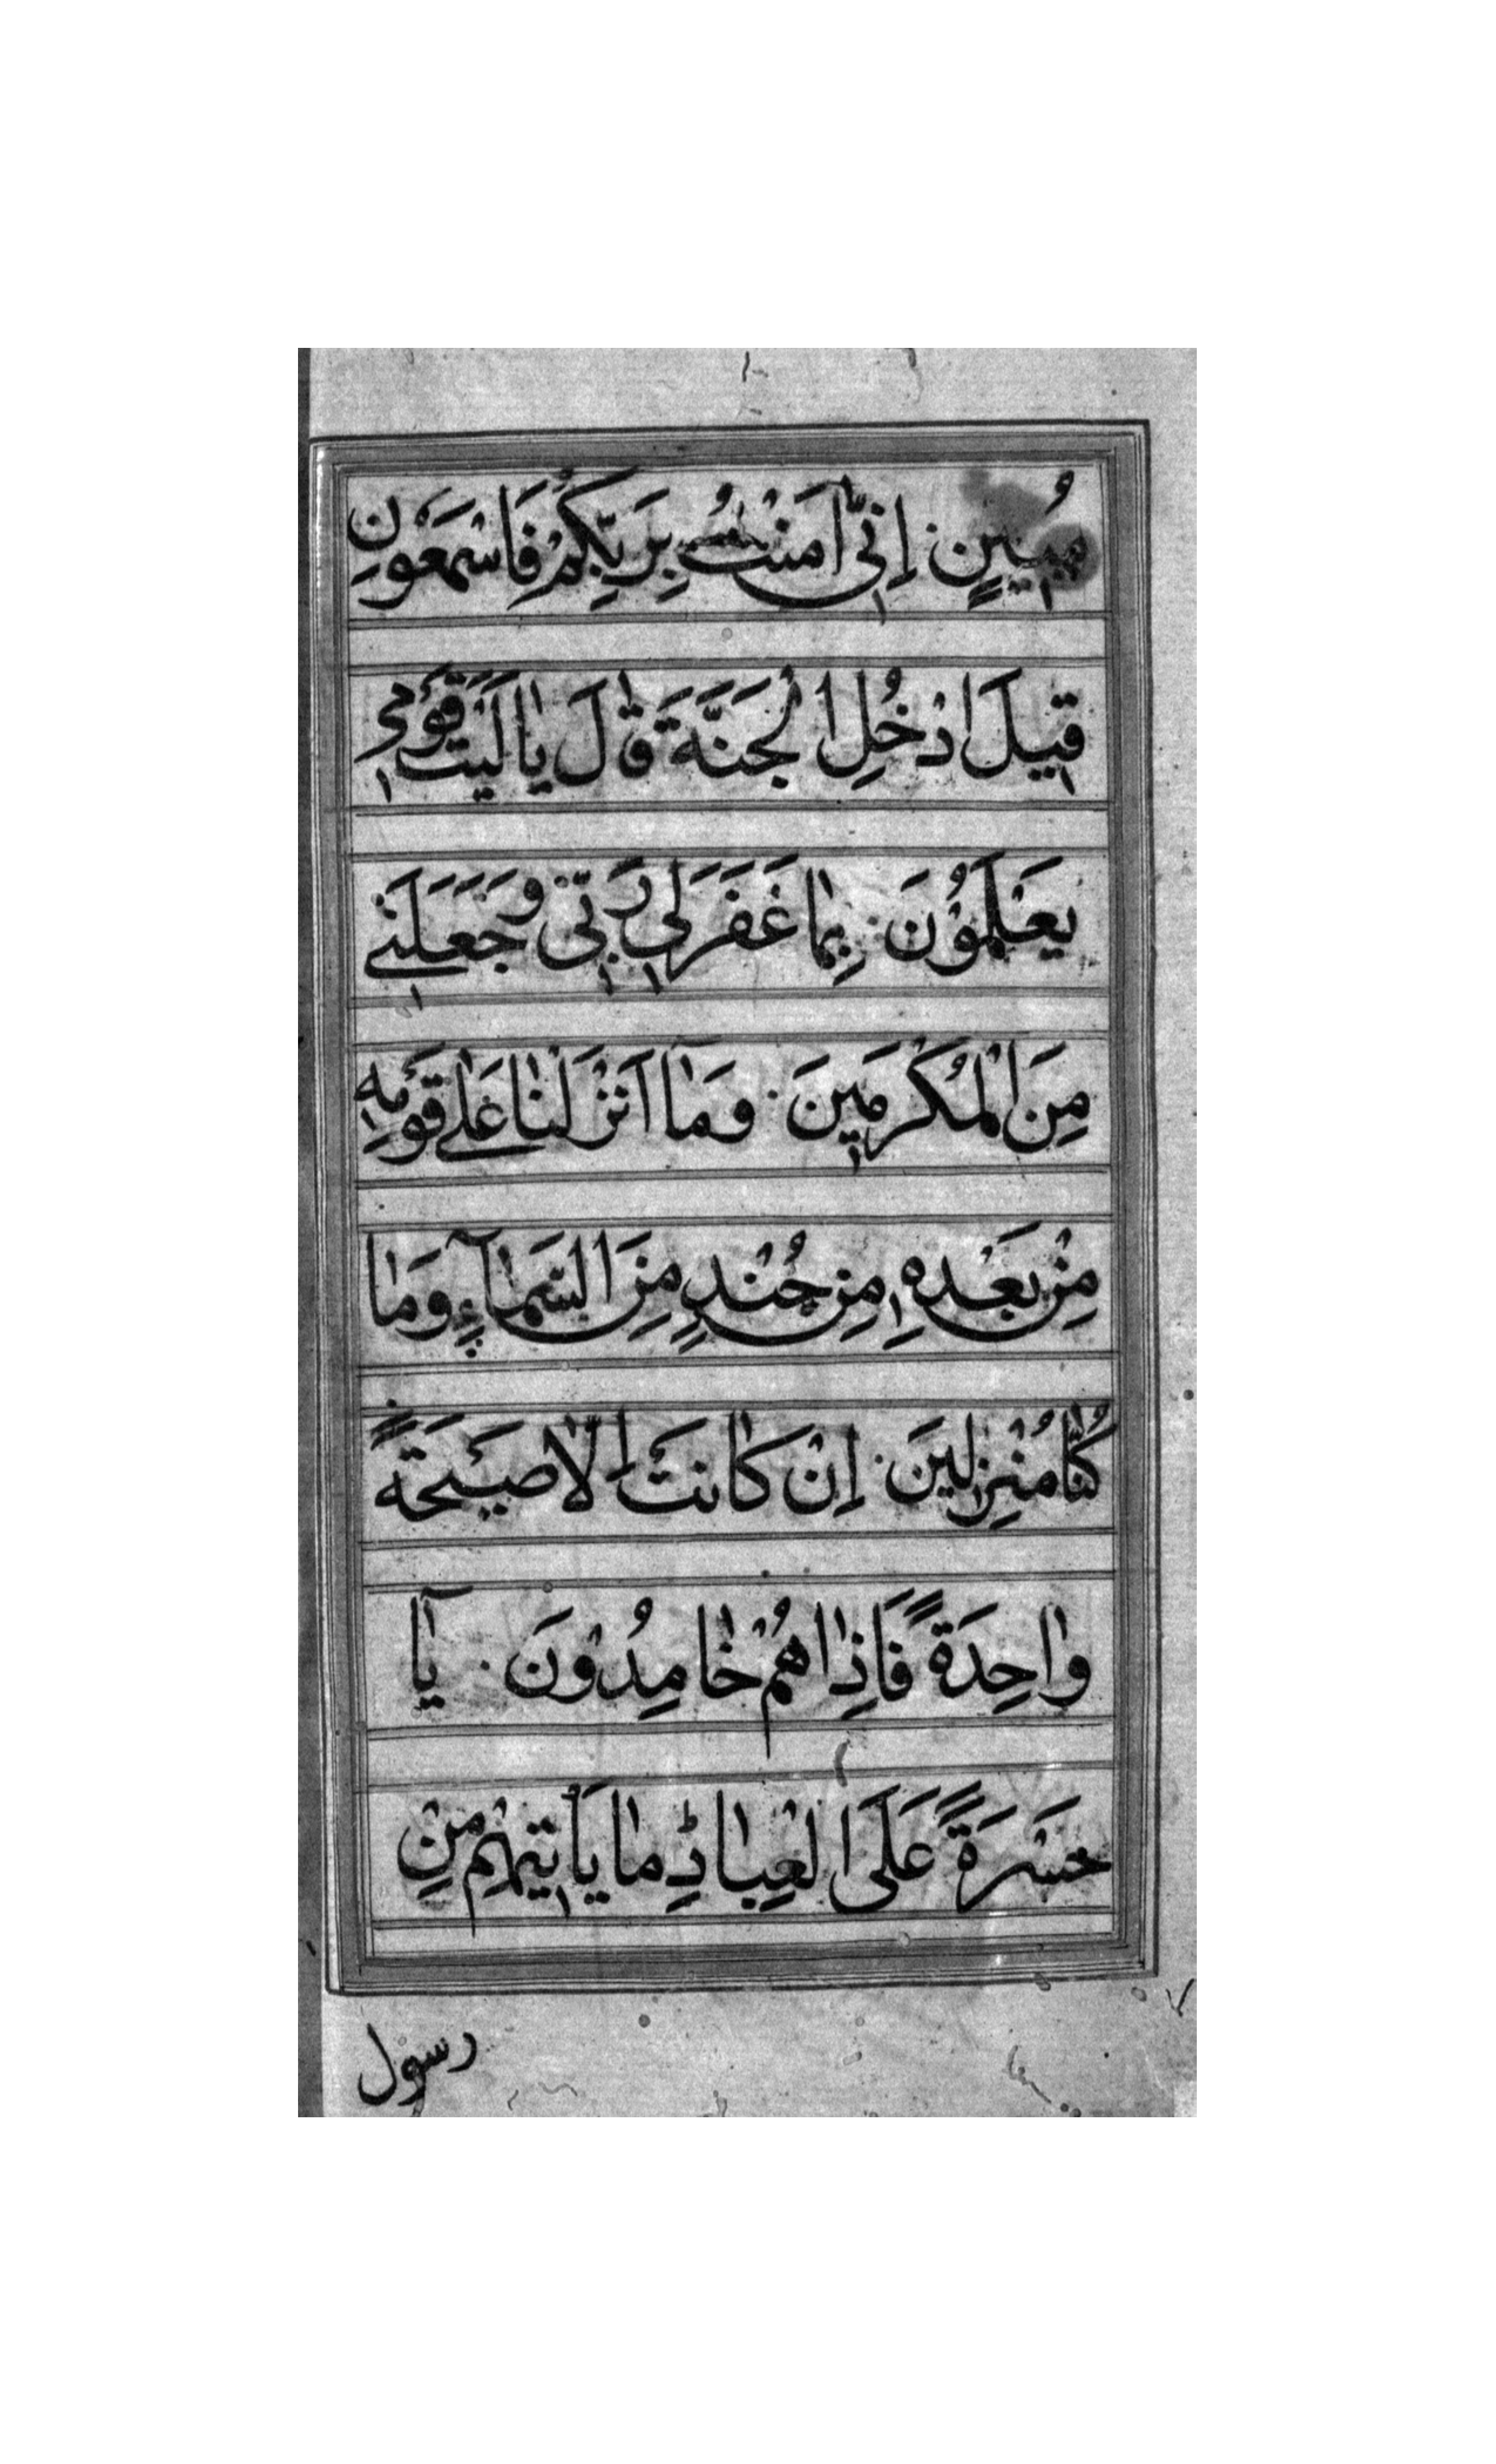 مُبِينٍ اِنّٖى اٰمَنْتُ بِرَبِّكُمْ فَاسْمَعُوْنِ
قٖيلَ ادْخُلِ الْجَنَّةَ قٰالَ يٰا لَيْتَ قَوْمٖى
يَعْلَمُوْنَ بِمٰا غَفَرَ لٖى رَبّٖى وَجَعَلَنٖے
مِنَ الْمُكْرَمٖينَ وَمٰا اَنْزَلْنٰا عَلٰے قَوْمِهٖ
مِنْ بَعْدِهٖ مِنْ جُنْدٍ مِنَ السَّمٰآءِ وَمٰا
كُنّٰا مُنْزِلٖينَ اِنْ كٰانَتْ اِلّٰا صَيْحَةً
وٰاحِدَةً فَاِذٰا هُمْ خٰامِدُوْنَ يٰٓا
حَسْرَةً عَلَى الْعِبٰادِ مٰا يَاْتٖيهِمْ مِنْ
رسول